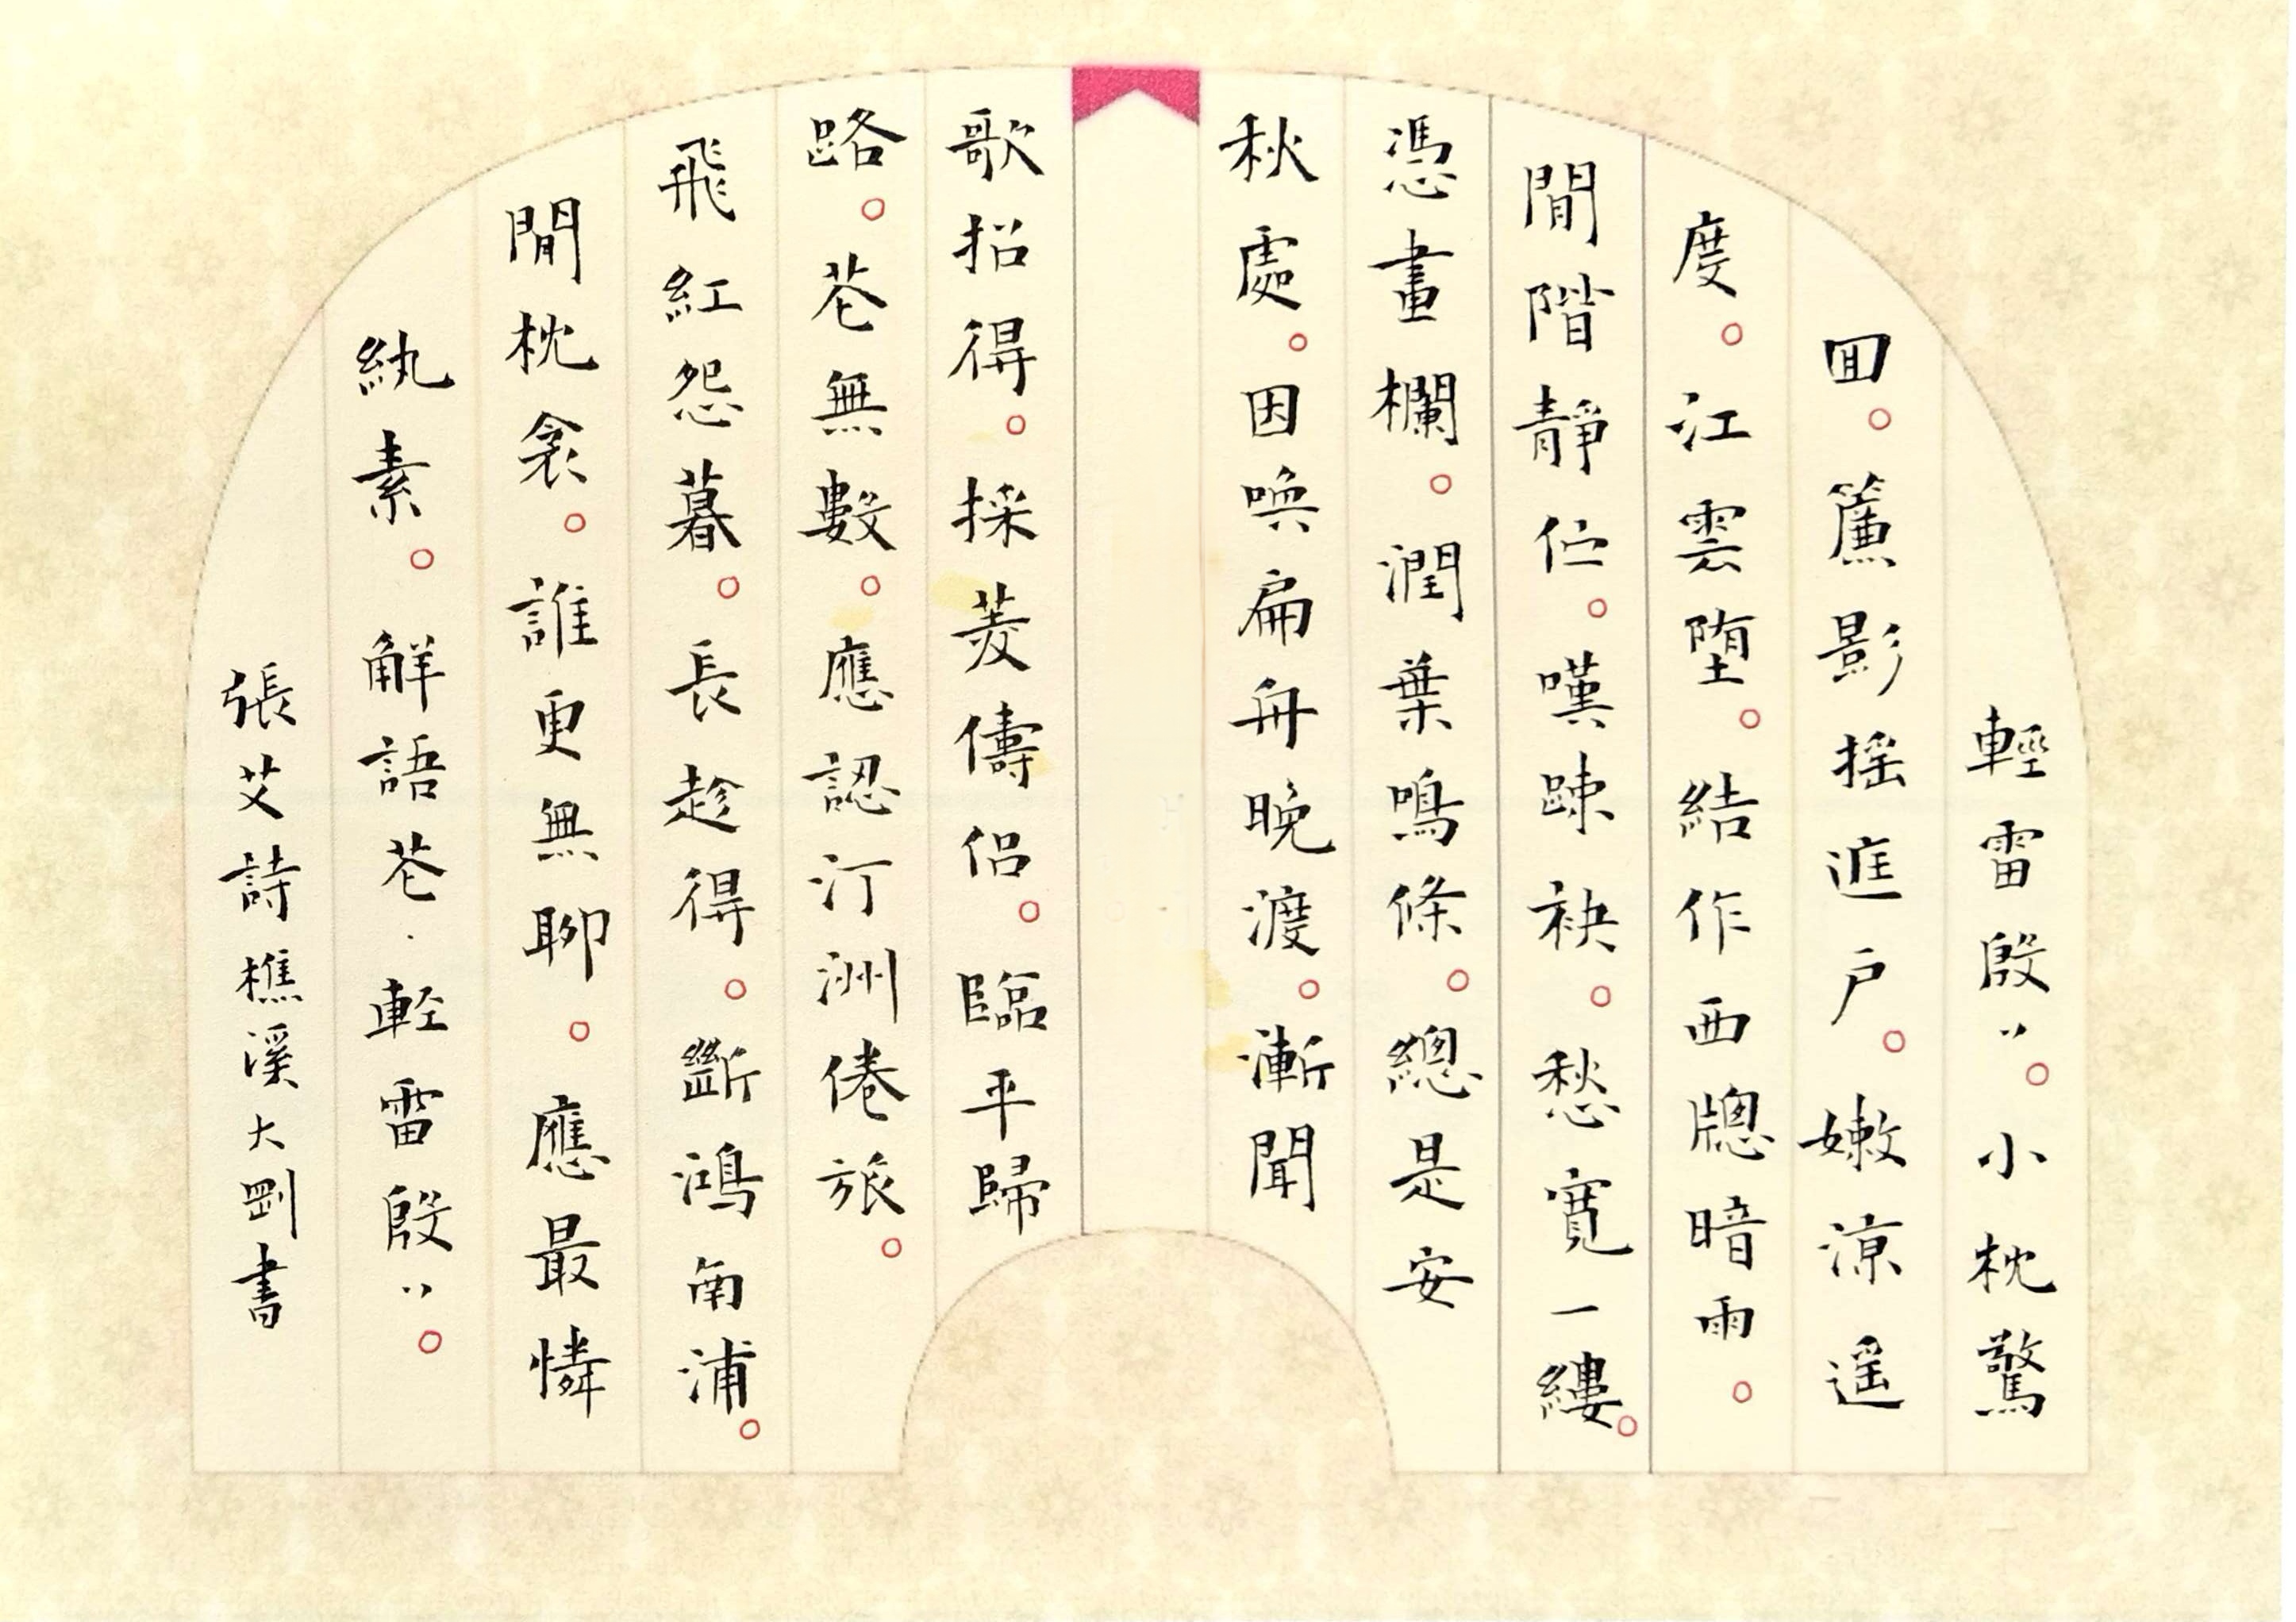 輕雷殷〃。小枕驚
回。簾影搖進戶。嫩涼遥
度。江雲墮。結作西牕暗雨。
閒階靜伫。嘆踈袂。愁寬一縷。
憑畫欄。潤葉鳴條。總是安
秋處。因喚扁舟晚渡。漸聞
歌招得。採菱儔侶。臨平歸
路。苍無數。應認汀洲倦旅。
飛紅怨暮。長趁得。斷鴻南浦。
閒枕衾。誰更無聊。應最憐
紈素。解語苍·輕雷殷〃。
張艾詩樵溪大剛書